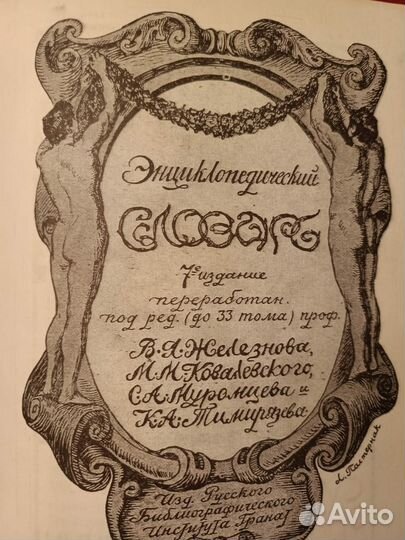 Энциклопедический
Словарь
7е издание
переработан.
под ред. (до 33 тома) проф.
В.Я. Железнова,
М.М. Ковалевского,
С.А. Муромцева и
К.А. Тимирязева
Изд. Русского
Библиографического
Института Гранат
Л. Пастернак
Avito